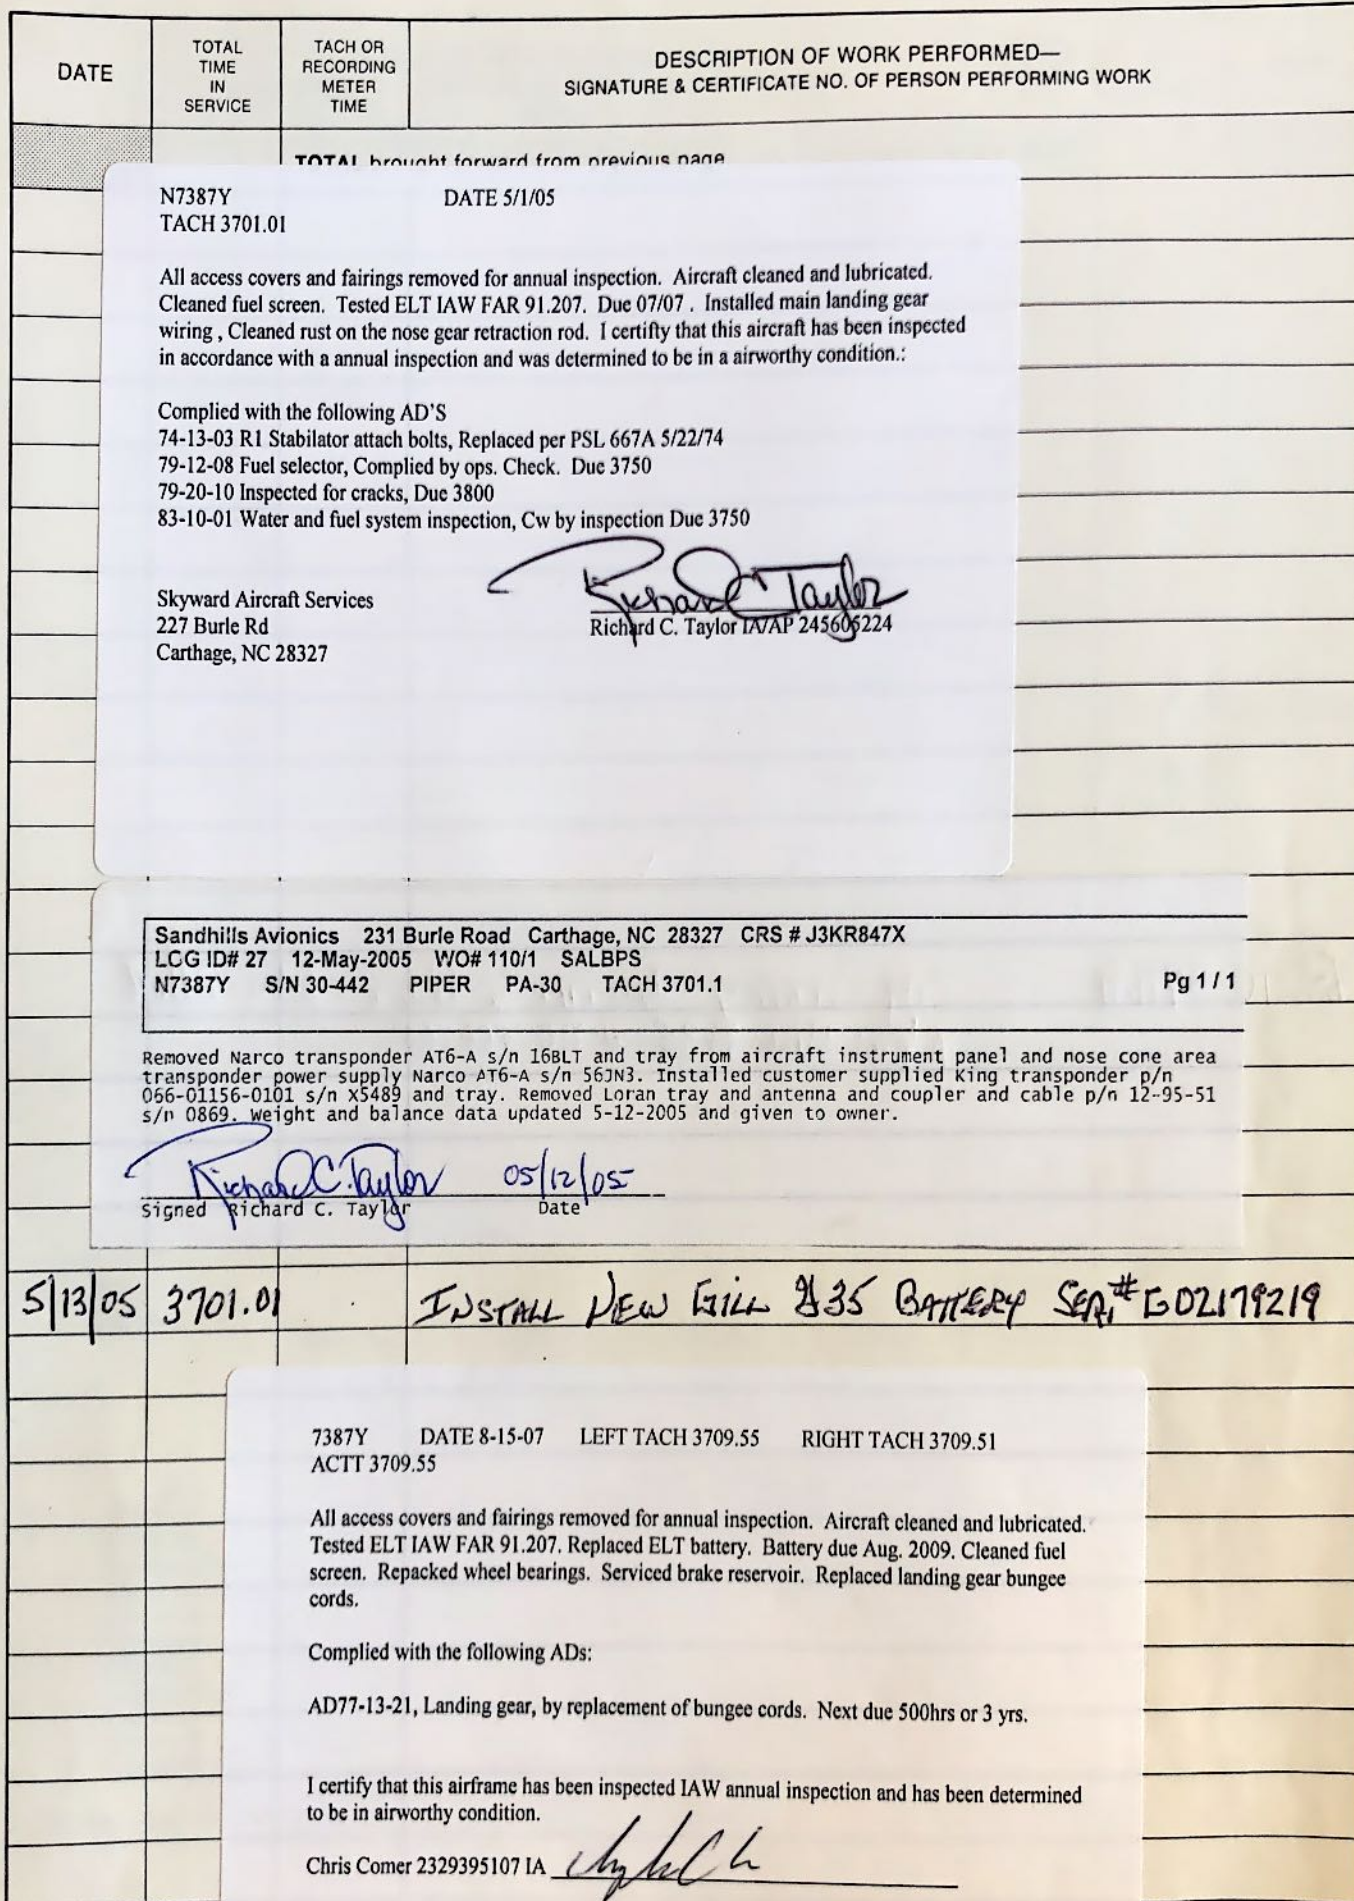 DATE
TOTAL
TIME
IN
SERVICE
TACH OR
RECORDING
METER
TIME
DESCRIPTION OF WORK PERFORMED—
SIGNATURE & CERTIFICATE NO. OF PERSON PERFORMING WORK
TOTAL brought forward from previous page
N7387Y DATE 5/1/05
TACH 3701.01
All access covers and fairings removed for annual inspection. Aircraft cleaned and lubricated.
Cleaned fuel screen. Tested ELT IAW FAR 91.207. Due 07/07 . Installed main landing gear
wiring , Cleaned rust on the nose gear retraction rod. I certifty that this aircraft has been inspected
in accordance with a annual inspection and was determined to be in a airworthy condition.:
Complied with the following AD'S
74-13-03 R1 Stabilator attach bolts, Replaced per PSL 667A 5/22/74
79-12-08 Fuel selector, Complied by ops. Check. Due 3750
79-20-10 Inspected for cracks, Due 3800
83-10-01 Water and fuel system inspection, Cw by inspection Due 3750
Richard C Taylor
Skyward Aircraft Services
227 Burle Rd
Carthage, NC 28327
Richard C. Taylor IA/AP 245605224
Sandhills Avionics 231 Burle Road Carthage, NC 28327 CRS # J3KR847X
LCG ID# 27 12-May-2005 WO# 110/1 SALBPS
N7387Y S/N 30-442 PIPER PA-30 TACH 3701.1 Pg 1 / 1
Removed Narco transponder AT6-A s/n 16BLT and tray from aircraft instrument panel and nose cone area
transponder power supply Narco AT6-A s/n 56JN3. Installed customer supplied King transponder p/n
066-01156-0101 s/n X5489 and tray. Removed Loran tray and antenna and coupler and cable p/n 12-95-51
s/n 0869. Weight and balance data updated 5-12-2005 and given to owner.
Richard C. Taylor 05/12/05
Signed Richard C. Taylor Date
5/13/05 3701.01 INSTALL NEW GILL G35 BATTERY SER.# G02179219
7387Y DATE 8-15-07 LEFT TACH 3709.55 RIGHT TACH 3709.51
ACTT 3709.55
All access covers and fairings removed for annual inspection. Aircraft cleaned and lubricated.
Tested ELT IAW FAR 91.207. Replaced ELT battery. Battery due Aug. 2009. Cleaned fuel
screen. Repacked wheel bearings. Serviced brake reservoir. Replaced landing gear bungee
cords.
Complied with the following ADs:
AD77-13-21, Landing gear, by replacement of bungee cords. Next due 500hrs or 3 yrs.
I certify that this airframe has been inspected IAW annual inspection and has been determined
to be in airworthy condition.
Chris Comer 2329395107 IA